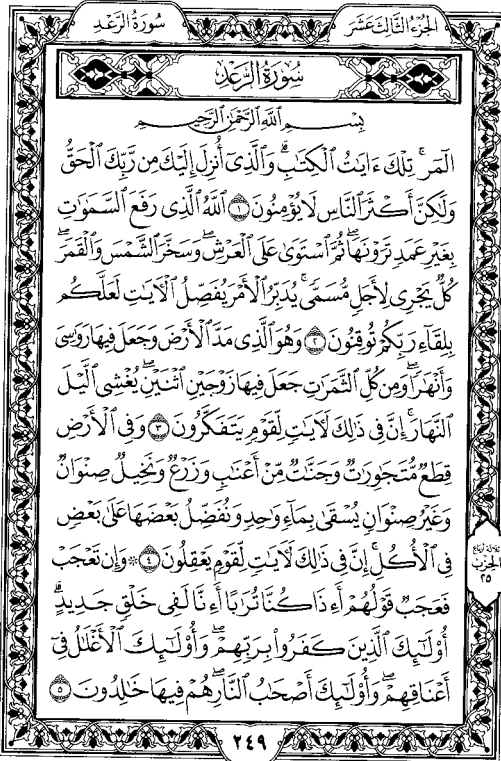 الجزء الثالث عشر
سورة الرعد
سورة الرعد
بِسْمِ ٱللَّهِ ٱلرَّحْمَٰنِ ٱلرَّحِيمِ
الٓمٓر ۚ تِلْكَ ءَايَٰتُ ٱلْكِتَٰبِ ۗ وَٱلَّذِىٓ أُنزِلَ إِلَيْكَ مِن رَّبِّكَ ٱلْحَقُّ
وَلَٰكِنَّ أَكْثَرَ ٱلنَّاسِ لَا يُؤْمِنُونَ ١ ٱللَّهُ ٱلَّذِى رَفَعَ ٱلسَّمَٰوَٰتِ
بِغَيْرِ عَمَدٍ تَرَوْنَهَا ۖ ثُمَّ ٱسْتَوَىٰ عَلَى ٱلْعَرْشِ ۖ وَسَخَّرَ ٱلشَّمْسَ وَٱلْقَمَرَ ۖ
كُلٌّ يَجْرِى لِأَجَلٍ مُّسَمًّى ۚ يُدَبِّرُ ٱلْأَمْرَ يُفَصِّلُ ٱلْءَايَٰتِ لَعَلَّكُم
بِلِقَآءِ رَبِّكُمْ تُوقِنُونَ ٢ وَهُوَ ٱلَّذِى مَدَّ ٱلْأَرْضَ وَجَعَلَ فِيهَا رَوَٰسِىَ
وَأَنْهَٰرًا ۖ وَمِن كُلِّ ٱلثَّمَرَٰتِ جَعَلَ فِيهَا زَوْجَيْنِ ٱثْنَيْنِ ۖ يُغْشِى ٱلَّيْلَ
ٱلنَّهَارَ ۚ إِنَّ فِى ذَٰلِكَ لَءَايَٰتٍ لِّقَوْمٍ يَتَفَكَّرُونَ ٣ وَفِى ٱلْأَرْضِ
قِطَعٌ مُّتَجَٰوِرَٰتٌ وَجَنَّٰتٌ مِّنْ أَعْنَٰبٍ وَزَرْعٌ وَنَخِيلٌ صِنْوَانٌ
وَغَيْرُ صِنْوَانٍ يُسْقَىٰ بِمَآءٍ وَٰحِدٍ وَنُفَضِّلُ بَعْضَهَا عَلَىٰ بَعْضٍ
فِى ٱلْأُكُلِ ۚ إِنَّ فِى ذَٰلِكَ لَءَايَٰتٍ لِّقَوْمٍ يَعْقِلُونَ ٤ ۞ وَإِن تَعْجَبْ
فَعَجَبٌ قَوْلُهُمْ أَءِذَا كُنَّا تُرَٰبًا أَءِنَّا لَفِى خَلْقٍ جَدِيدٍ ۗ
أُو۟لَٰٓئِكَ ٱلَّذِينَ كَفَرُوا۟ بِرَبِّهِمْ ۖ وَأُو۟لَٰٓئِكَ ٱلْأَغْلَٰلُ فِىٓ
أَعْنَاقِهِمْ ۖ وَأُو۟لَٰٓئِكَ أَصْحَٰبُ ٱلنَّارِ ۖ هُمْ فِيهَا خَٰلِدُونَ ٥
ثلاثة أرباع
الحزب
٢٥
٢٤٩